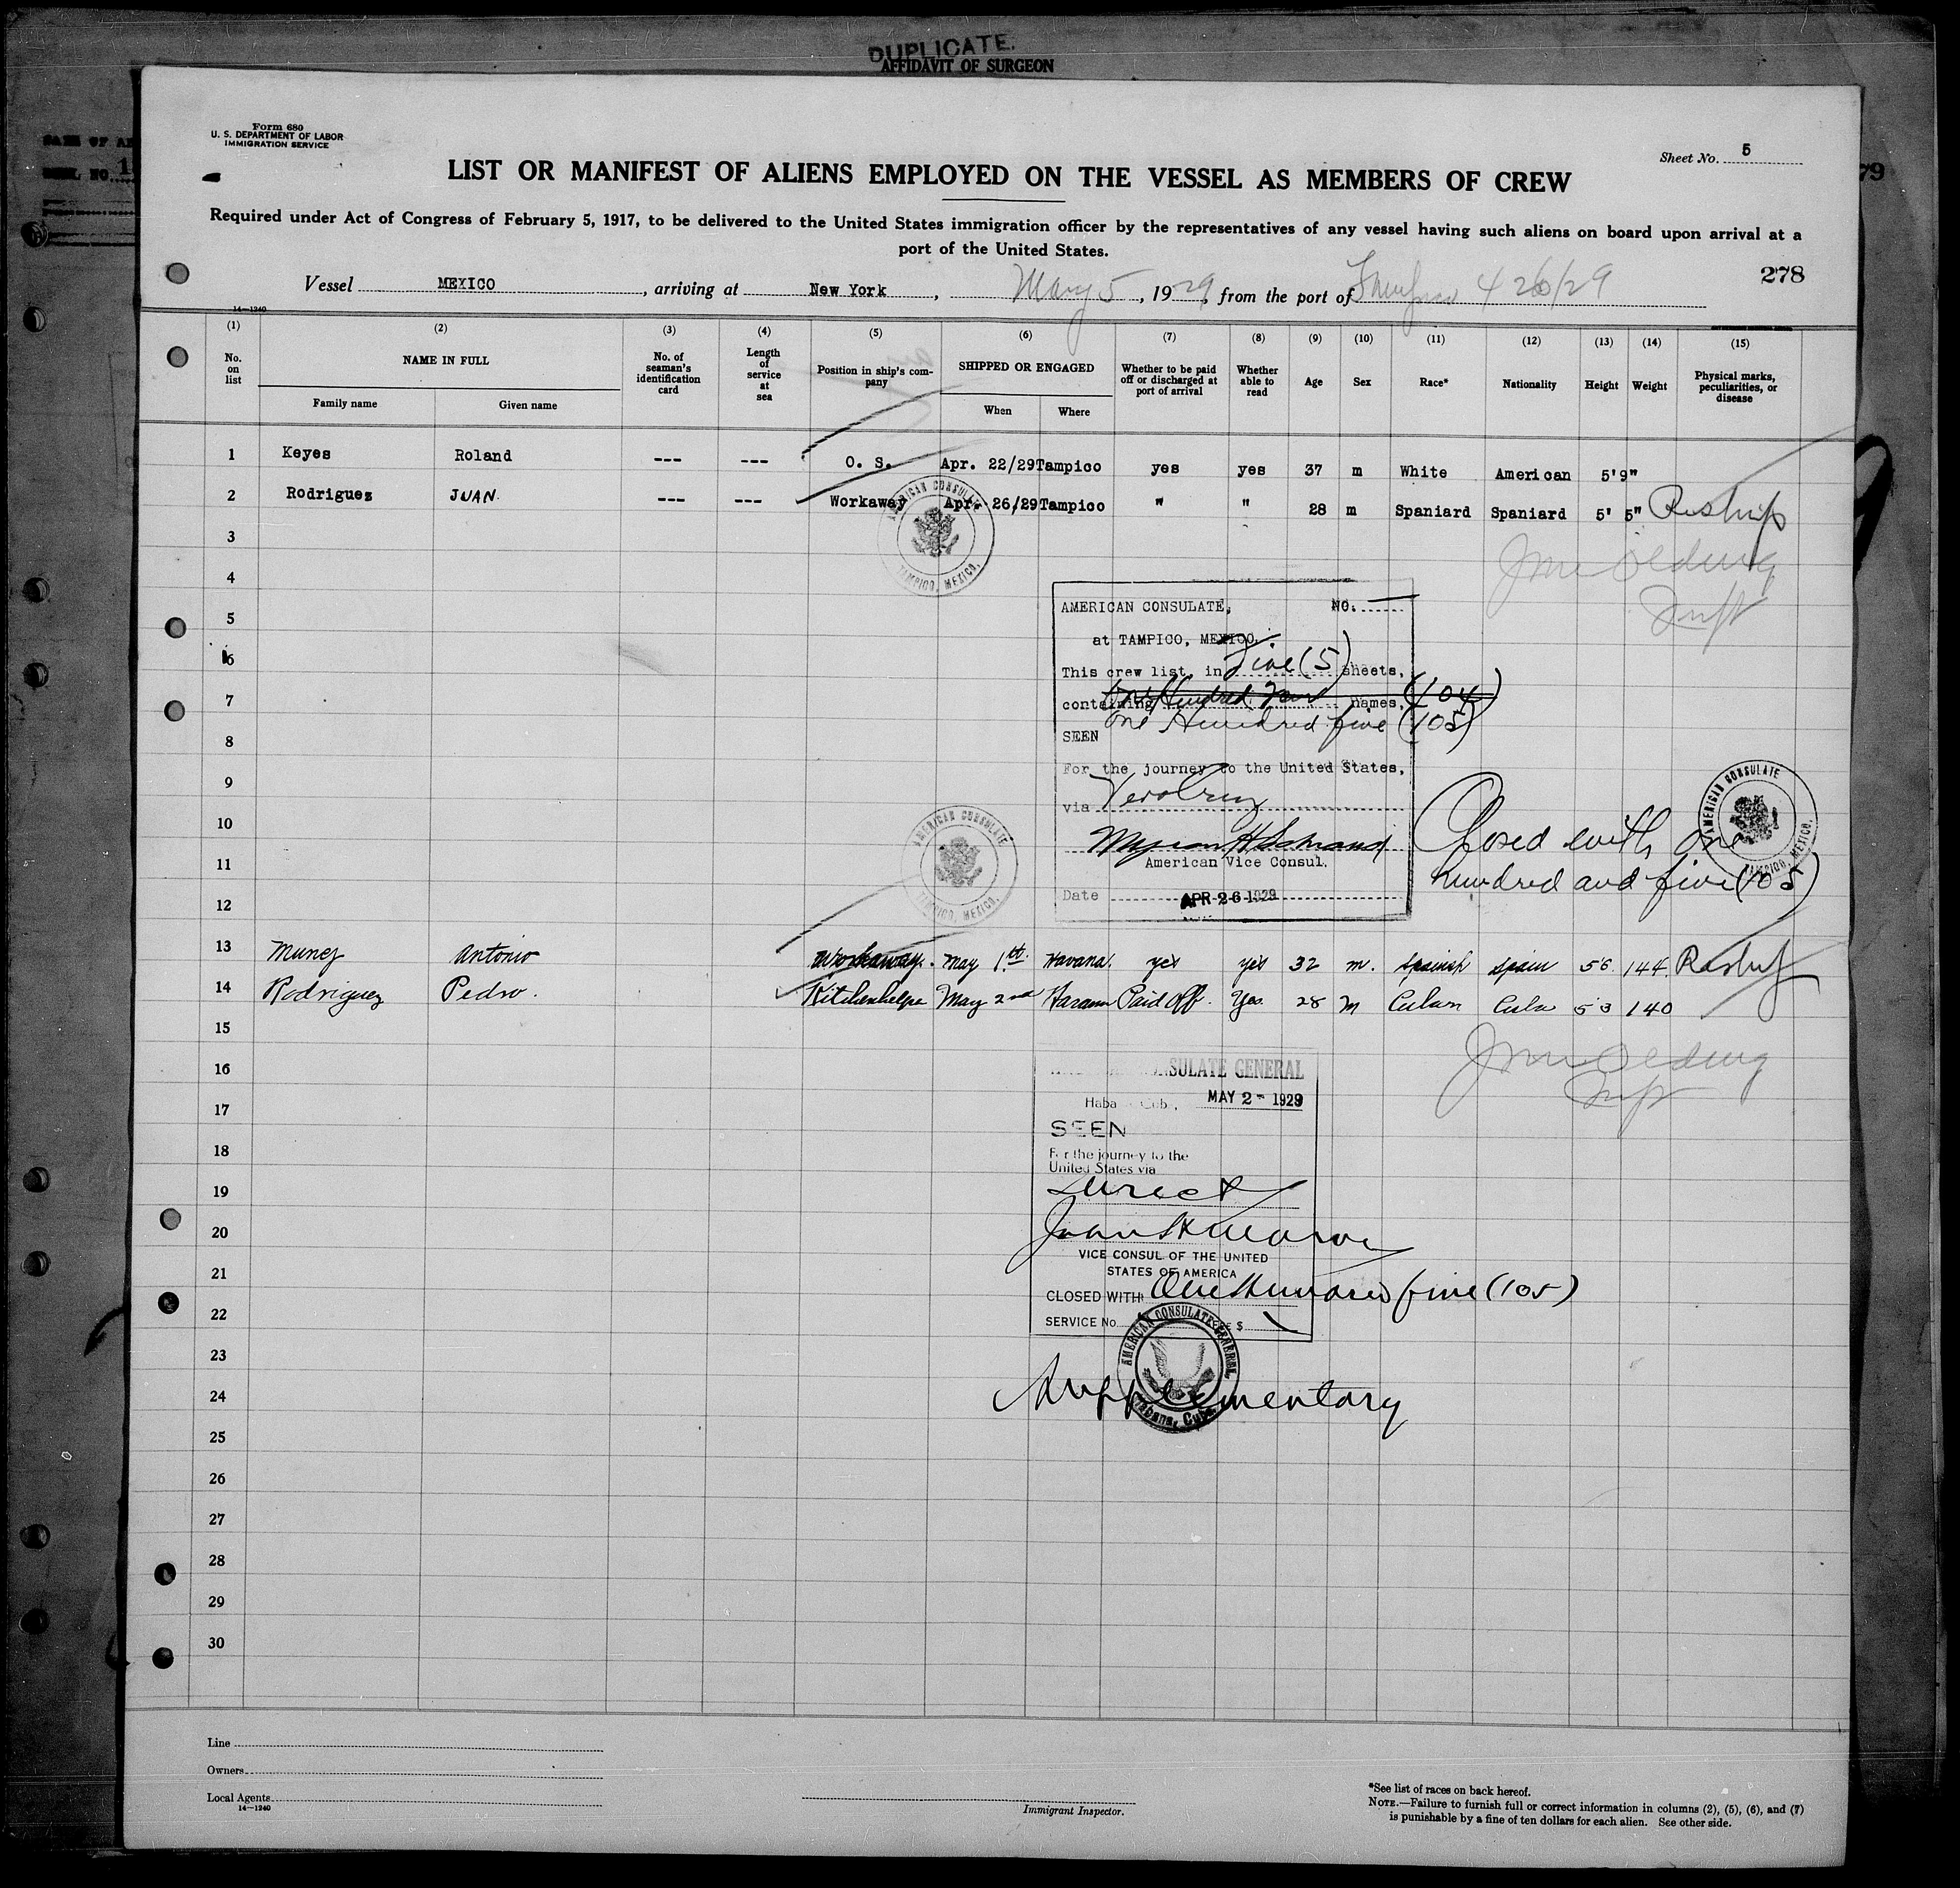 DUPLICATE.
AFFIDAVIT OF SURGEON
Form 680
U. S. DEPARTMENT OF LABOR
IMMIGRATION SERVICE
Sheet No. 5
LIST OR MANIFEST OF ALIENS EMPLOYED ON THE VESSEL AS MEMBERS OF CREW
Required under Act of Congress of February 5, 1917, to be delivered to the United States immigration officer by the representatives of any vessel having such aliens on board upon arrival at a
port of the United States.
278
Vessel MEXICO, arriving at New York, May 5, 1929, from the port of 4 26/29
14—1240
(1) (2) (3) (4) (5) (6) (7) (8) (9) (10) (11) (12) (13) (14) (15)
No. on list
NAME IN FULL
Family name
Given name
No. of seaman's identification card
Length of service at sea
Position in ship's company
SHIPPED OR ENGAGED
When
Where
Whether to be paid off or discharged at port of arrival
Whether able to read
Age
Sex
Race*
Nationality
Height
Weight
Physical marks, peculiarities, or disease
1 Keyes Roland --- --- O. S. Apr. 22/29 Tampico yes yes 37 m White American 5'9"
2 Rodriguez JUAN --- --- Workaway Apr. 26/29 Tampico " " 28 m Spaniard Spaniard 5' 5" Reship
AMERICAN CONSULATE
TAMPICO, MEXICO.
3
4
5
6
7
8
9
10
11
12
AMERICAN CONSULATE, NO.
at TAMPICO, MEXICO.
This crew list, in Five (5) sheets,
containing One Hundred Four names, (104)
One Hundred five (105)
SEEN
For the journey to the United States,
via Vera Cruz
American Vice Consul.
Date APR 26 1929
Closed with one
hundred and five (105)
AMERICAN CONSULATE
TAMPICO, MEXICO.
AMERICAN CONSULATE
TAMPICO, MEXICO.
13 Munez Antonio Workaway. May 1st. Havana. yes yes 32 m. Spanish Spain 5 6 144 Reship
14 Rodriguez Pedro. Kitchenhelper May 2nd Havana Paid Off. Yes. 28 M Cuban Cuba 5 3 140
15
16
17
18
19
20
21
22
23
24
25
26
27
28
29
30
SULATE GENERAL
MAY 2 - 1929
SEEN
For the journey to the
United States via
Direct
VICE CONSUL OF THE UNITED
STATES OF AMERICA
CLOSED WITH One Hundred five (105)
SERVICE No. $
AMERICAN CONSULATE GENERAL
Habana, Cuba.
Supplementary
Line
Owners
Local Agents
14—1240
Immigrant Inspector.
*See list of races on back hereof.
NOTE.—Failure to furnish full or correct information in columns (2), (5), (6), and (7)
is punishable by a fine of ten dollars for each alien. See other side.